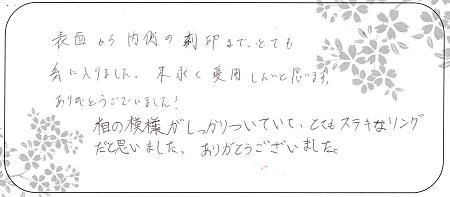 表面から内側の刻印まで、とても
気に入りました。末永く愛用したいと思います。
ありがとうございました!
相の模様がしっかりついていて、とてもステキなリング
だと思いました。ありがとうございました。